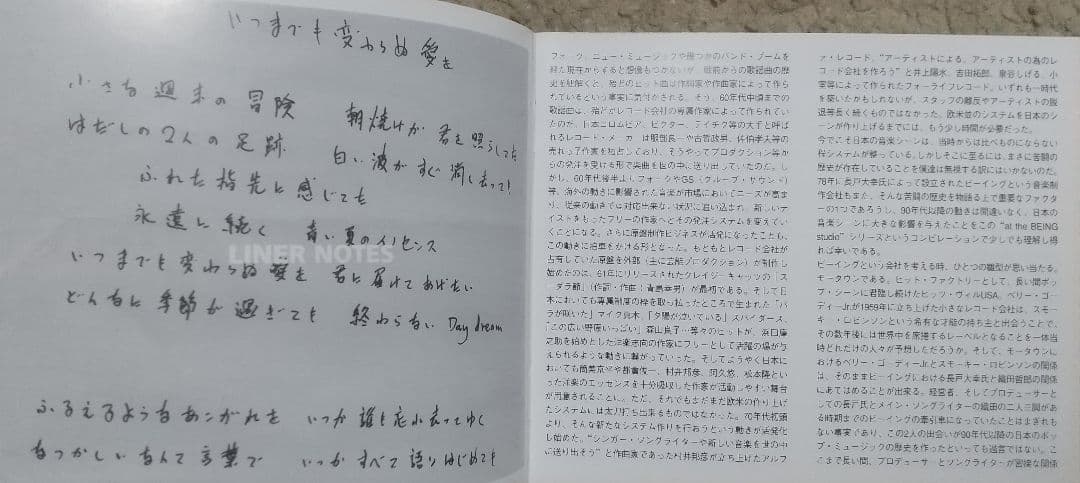 いつまでも変わらぬ愛を
小さな週末の冒険 朝焼けが君を照らしてた
はだしの2人の足跡 白い波がすぐ消し去って!
ふれた指先に感じてた
永遠に続く 青い夏のイノセンス
LINER NOTES
いつまでも変わらぬ愛を 君に届けてあげたい
どんなに季節が過ぎても 終わらない Day dream
ふるえるようなあこがれを いつか誰も忘れ去ってゆく
なつかしいなんて言葉で いつかすべて語りはじめても
フォーク、ニュー・ミュージックや幾つかのバンド・ブームを
経た現在からすると想像もつかないが、戦前からの歌謡曲の歴
史を紐解くと、殆どのヒット曲は作詞家や作曲家によって作ら
れているという事実に気付かされる。そう、60年代中頃までの
歌謡曲は、殆どがレコード会社の専属作家によって作られてい
たのだ。日本コロムビア、ビクター、テイチク等の大手と呼ば
れるレコード・メーカーは服部良一や古賀政男、佐伯孝夫等の
売れっ子作家を独占しており、そうやってプロダクション等か
らの発注を受ける形で楽曲を世の中に送り出していたのだ。し
かし、60年代後半よりフォークやGS（グループ・サウンド）
等、海外の動きに影響された音楽が市場においてニーズが高ま
り、従来の動きでは対応出来ない状況に追い込まれ、新しいテ
イストをもったフリーの作家へとその発注システムを変えてい
くことになる。さらに原盤制作ビジネスが活発になったことも、
この動きに拍車をかける形となった。もともとレコード会社が
占有していた原盤を外部（主に芸能プロダクション）が制作し
始めたのは、61年にリリースされたクレイジーキャッツの「ス
ーダラ節」（作詞・作曲：青島幸男）が最初である。そして日
本においても専属制度の枠を取っ払ったところで生まれた「バ
ラが咲いた」マイク真木「夕陽が泣いている」スパイダース、
「この広い野原いっぱい」森山良子…等々のヒットが、浜口庫
之助を始めとした洋楽志向の作家にフリーとして活躍の場が与
えられるような動きに繋がっていった。そしてようやく日本に
おいても筒美京平や都倉俊一、村井邦彦、阿久悠、松本隆とい
った洋楽のエッセンスを十分吸収した作家が活動しやすい舞台
が用意されることに。ただ、それでもまだまだ欧米の作り上げ
たシステムには太刀打ち出来るものではなかった。70年代初頭
より、そんな新たなシステム作りを行おうという動きが活発化
し始めた。“シンガー・ソングライターや新しい音楽を世の中
に送り出そう”と作曲家であった村井邦彦が立ち上げたアルフ
ァ・レコード、“アーティストによる、アーティストの為のレ
コード会社を作ろう”と井上陽水、吉田拓郎、泉谷しげる、小
室等によって作られたフォーライフレコード。いずれも一時代
を築いたかもしれないが、スタッフの離反やアーティストの脱
退等長く続くものではなかった。欧米並のシステムを日本のシ
ーンが作り上げるまでには、もう少し時間が必要だった。
今でこそ日本の音楽シーンは、当時からは比べものにならない
程システムが整っている。しかしそこに至るには、まさに苦闘の
歴史が存在していることを僕達は無視する訳にはいかないのだ。
78年に長戸大幸氏によって設立されたビーイングという音楽制
作会社もまた、そんな苦闘の歴史を物語る上で重要なファクタ
ーの1つであろうし、90年代以降の動きは間違いなく、日本の
音楽シーンに大きな影響を与えたことをこの“at the BEING
studio”シリーズというコンピレーションで少しでも理解し得
れば幸いである。
ビーイングという会社を考える時、ひとつの雛型が思い当たる。
モータウンである。ヒット・ファクトリーとして、長い間ポッ
プ・シーンに君臨し続けたヒッツ・ヴィルUSA。ベリー・ゴー
ディーJr.が1959年に立ち上げた小さなレコード会社は、スモー
キー・ロビンソンという希有な才能の持ち主と出会うことで、
その数年後には世界中を席捲するレーベルとなることを一体当
時どれだけの人々が予想しただろうか。そして、モータウンに
おけるベリー・ゴーディーJr.とスモーキー・ロビンソンの関係
は、そのままビーイングにおける長戸大幸氏と織田哲郎の関係
にあてはめることが出来る。経営者、そしてプロデューサーと
しての長戸氏とメイン・ソングライターの織田の二人三脚があ
る時期までのビーイングの牽引車になっていたことはまぎれも
ない事実であり、この2人の出会いが90年代以降の日本のポッ
プ・ミュージックの歴史を作ったといっても過言ではない。こ
こまで長い間、プロデューサーとソングライターが密接な関係